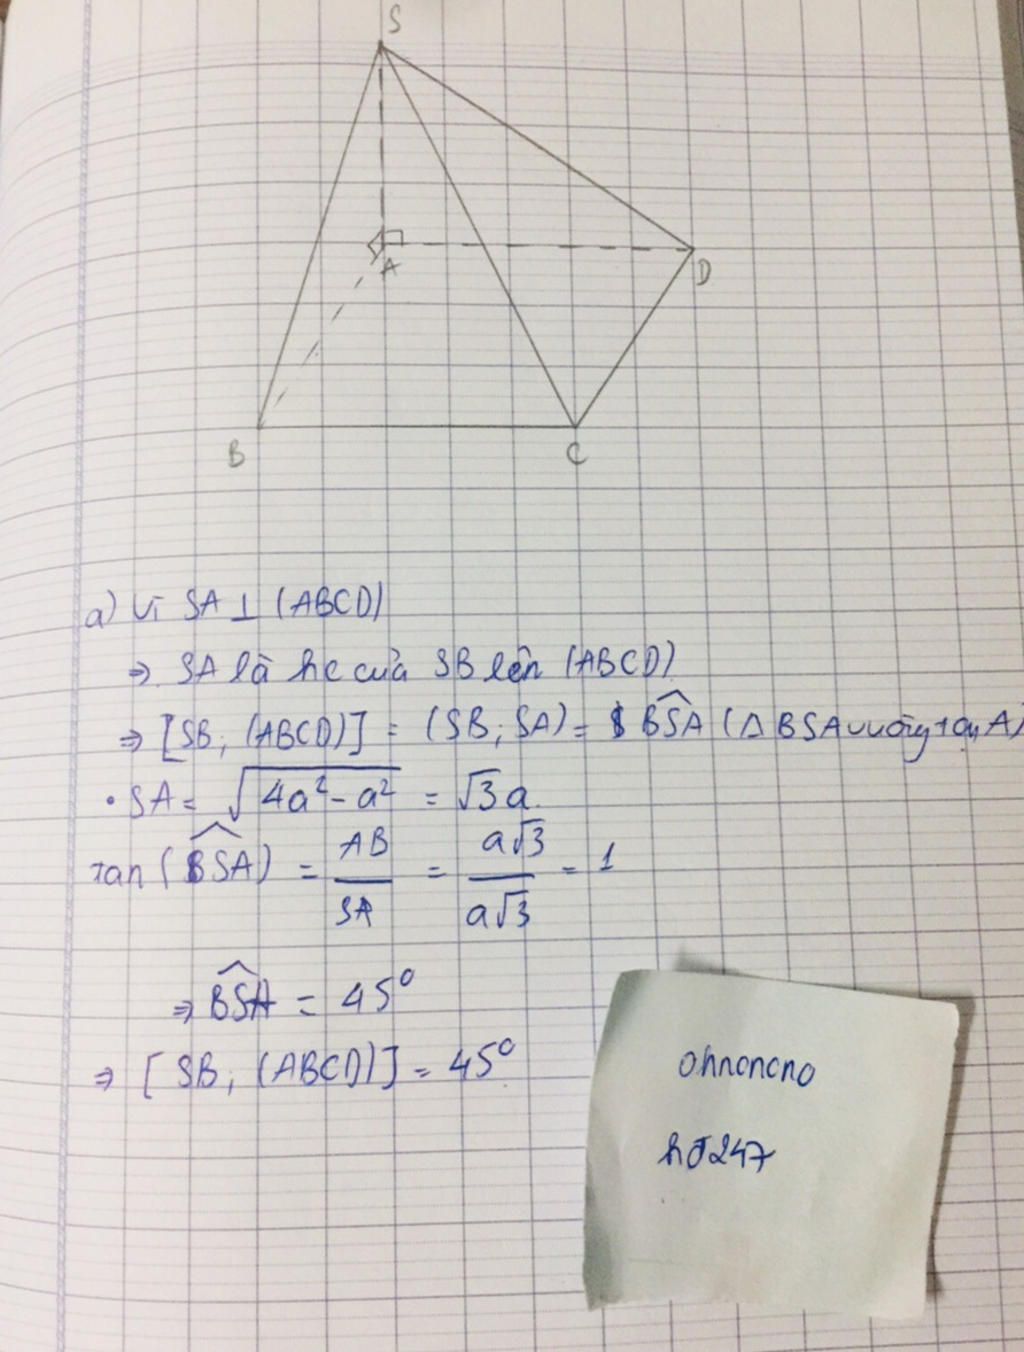 S
A
D
B
C
a) Vì SA ⊥ (ABCD)
⇒ SA là hc của SB lên (ABCD)
⇒ [SB; (ABCD)] = (SB; SA) = \widehat{BSA} (Δ BSA vuông tại A)
• SA = \sqrt{4a² - a²} = √3a
tan (\widehat{BSA}) = \frac{AB}{SA} = \frac{a√3}{a√3} = 1
⇒ \widehat{BSA} = 45°
⇒ [SB; (ABCD)] = 45°
ohnonono
hđ247